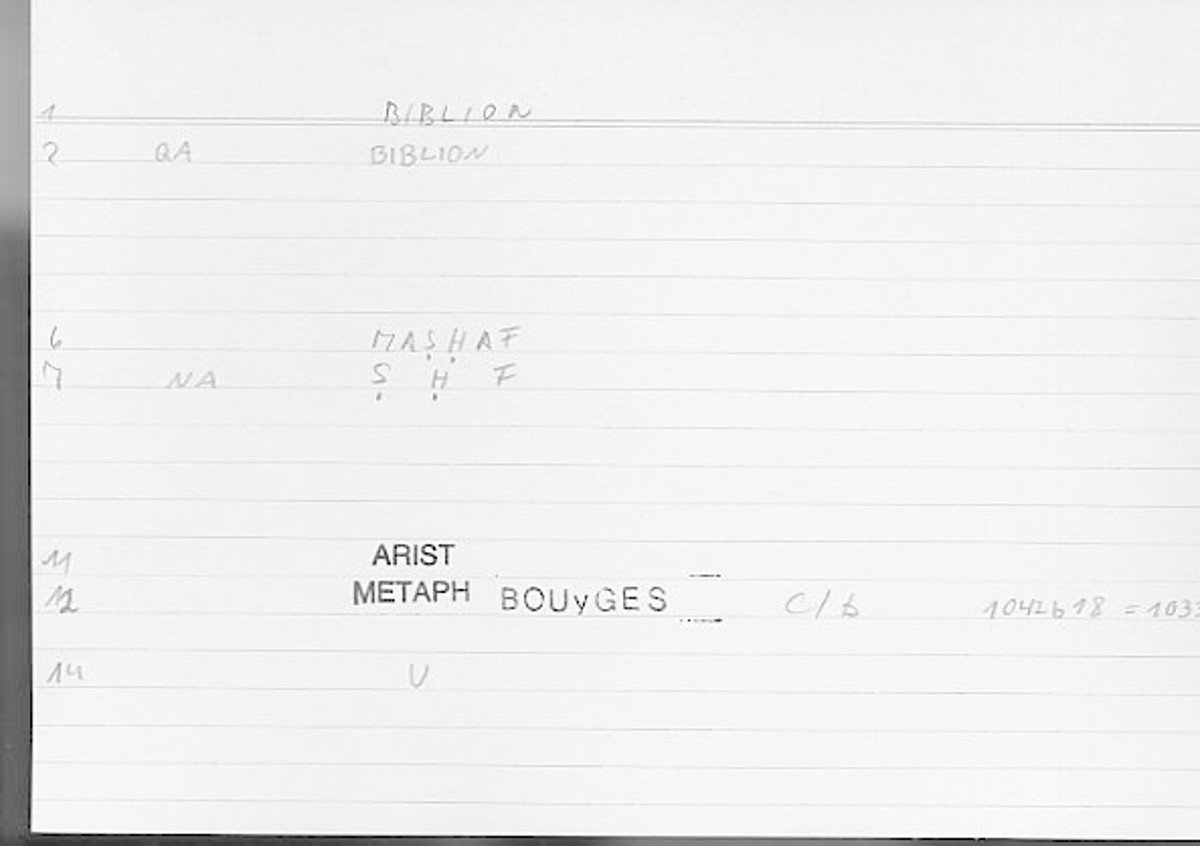 1 BIBLION
2 QA BIBLION
6 MAṢḤAF
7 NA Ṣ Ḥ F
11 ARIST
12 METAPH BOUyGES C/b 1042b18 = 1033
14 U